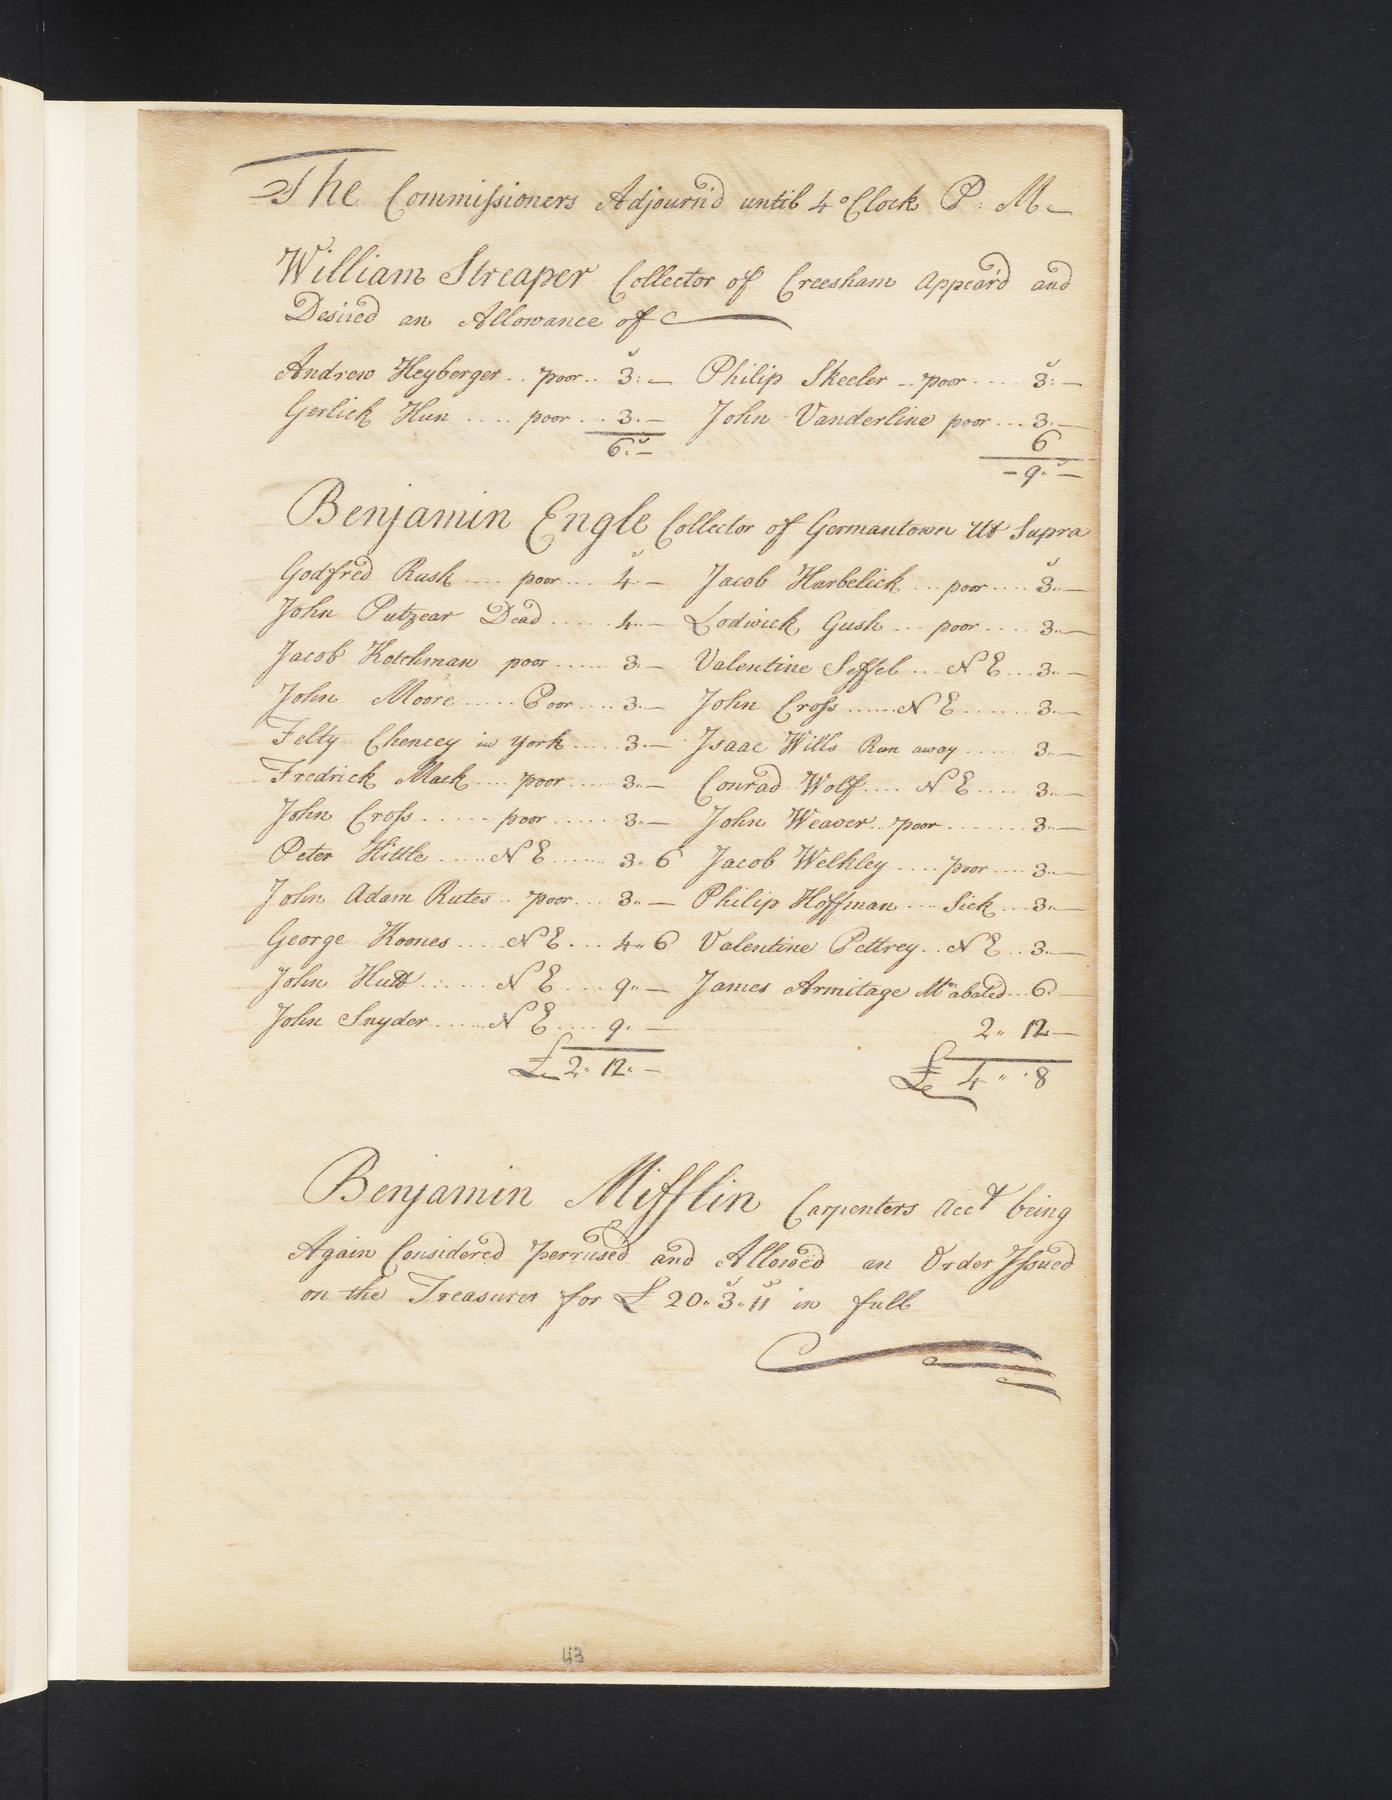 The Commissioners Adjourn'd until 4 oClock P: M
William Streaper Collector of Creesham appear'd and
Desired an Allowance of
Andrew Heyberger .. poor .. 3: — Philip Skeeler .. poor .... 3: —
Gerlick Hun .... poor ... 3. — John Vanderline poor ... 3. —
6: — 6
— 9.. —
Benjamin Engle Collector of Germantown Ut Supra
Godfred Rush .... poor .... 4. — Jacob Harbelick ... poor .... 3.. —
John Putzear Dead ..... 4.. — Lodwick Gush ... poor .... 3.. —
Jacob Kotchman poor ...... 3. — Valentine Seffel ... N E ... 3.. —
John Moore ..... Poor .... 3. — John Cross ..... N E ...... 3. —
Felty Chencey in York ..... 3. — Isaac Wills Run away ..... 3.. —
Fredrick Mack .... poor ..... 3.. — Conrad Wolf .... N E .... 3.. —
John Cross ...... poor ...... 3.. — John Weaver .. poor ....... 3.. —
Peter Hittle ..... N E ...... 3.. 6 Jacob Welkley .... poor .... 3. —
John Adam Rutes .. poor ... 3.. — Philip Hoffman .... Sick ... 3.. —
George Koones ..... N E .... 4.. 6 Valentine Pettrey .. N E .. 3. —
John Hutt ...... N E .... 9.. — James Armitage Mn abated ... 6. —
John Snyder ..... N E .... 9. — 2.. 12 —
£ 2.. 12.. — £ 4 .. 8
Benjamin Mifflin Carpenters Acct being
Again Considered perrused and Allowed an Order Issued
on the Treasurer for £ 20.. 3.. 11 in full
43